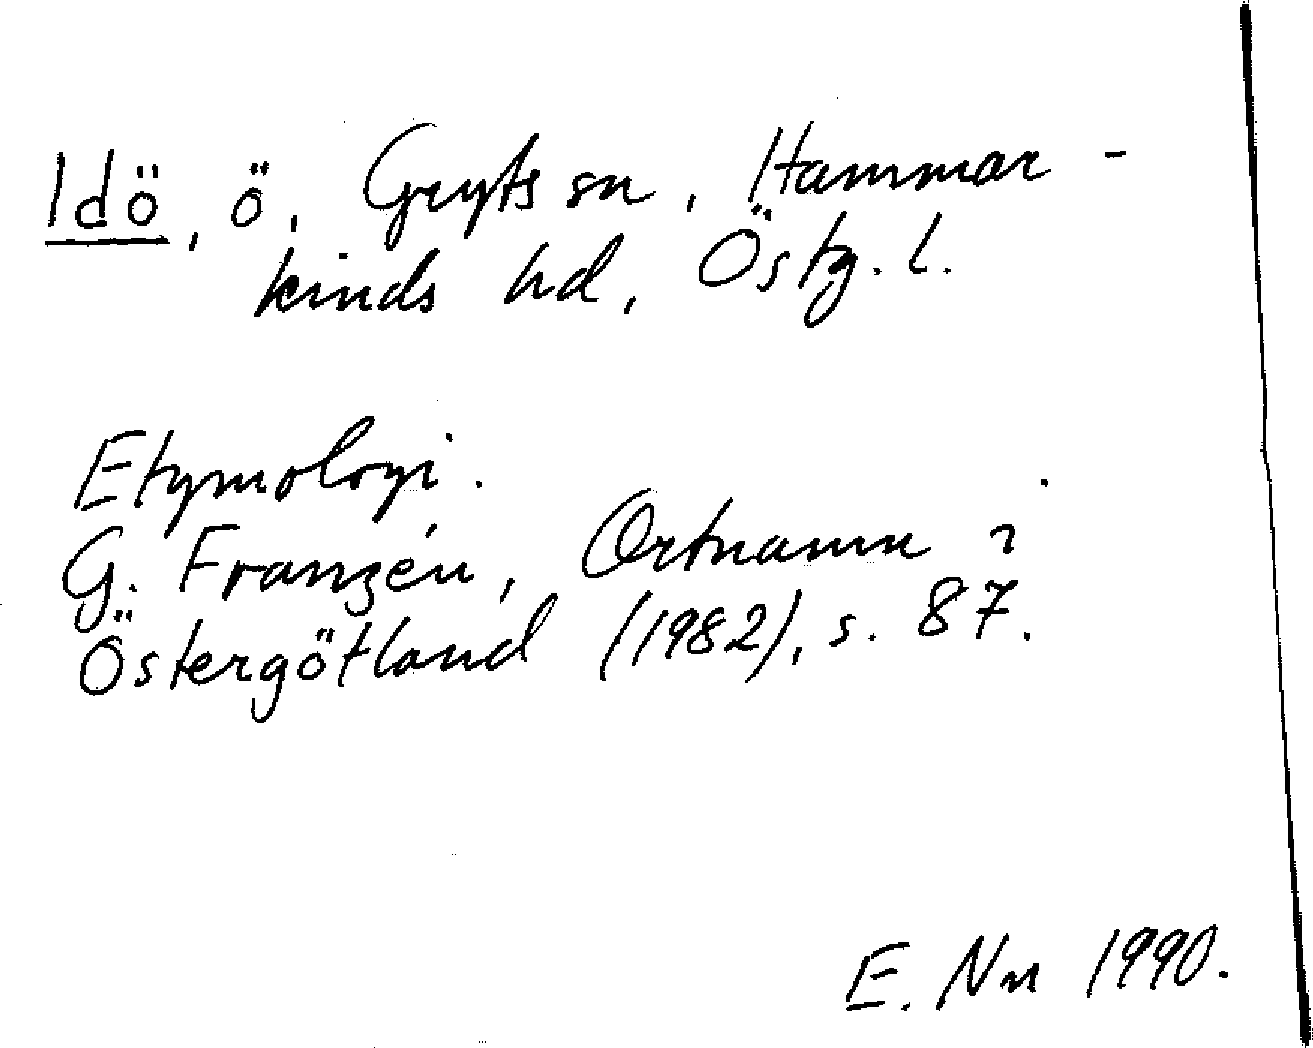 Idö, ö, Gryts sn, Hammar-
kinds hd, Östg. l.
Etymologi.
G. Franzén, Ortnamn i
Östergötland (1982), s. 87.
E. Nn 1990.